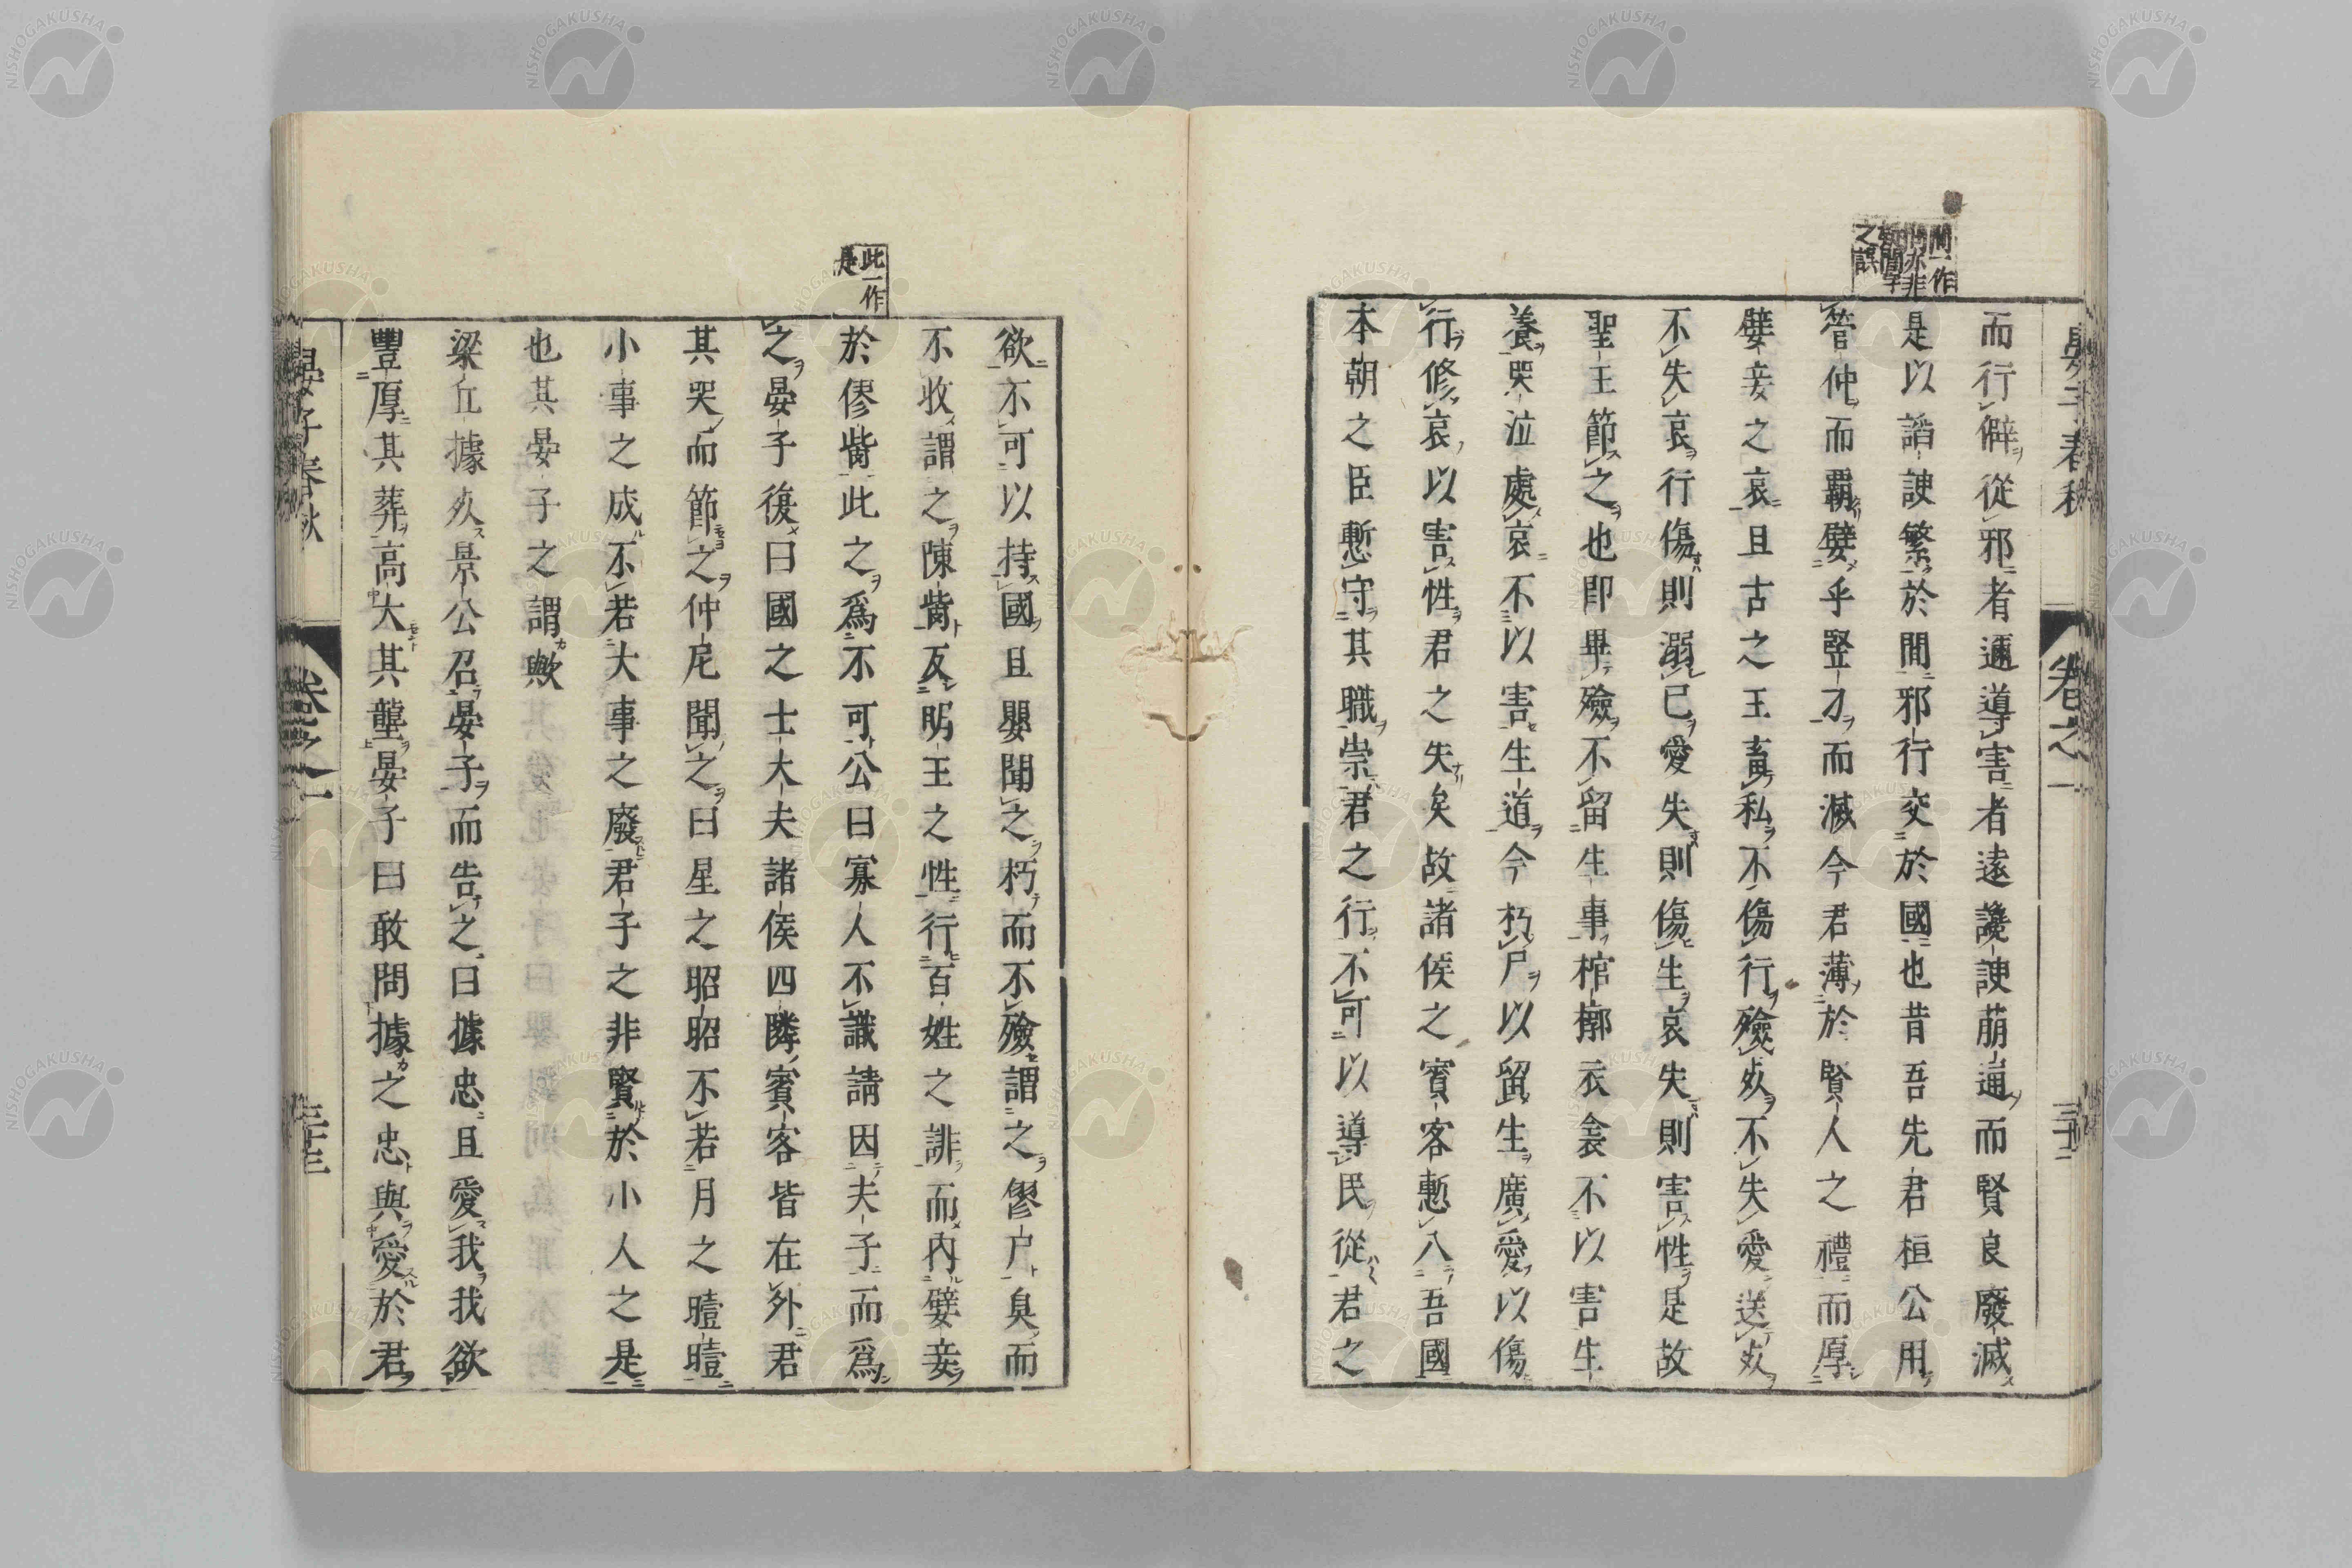 晏子春秋
卷之一
三十二
間一作
之誤
而行僻從邪者邇導害者遠讒諛萠通而賢良廢滅
是以諂諛繁於間邪行交於國也昔吾先君桓公用
管仲而霸嬖乎豎刁而滅今君薄於賢人之禮而厚
嬖妾之哀且古之王畜私不傷行殮死不失愛送死
不失哀行傷則溺己愛失則傷生哀失則害性是故
聖王節之也即畢殮不留生事棺槨衣衾不以害生
養哭泣處哀不以害生道今朽尸以留生廣愛以傷
行修哀以害性君之失矣故諸侯之賓客慙入吾國
本朝之臣慙守其職崇君之行不可以導民從君之
此一作
是
欲不可以持國且嬰聞之朽而不殮謂之僇尸臭而
不收謂之陳胔反明王之性行百姓之誹而内嬖妾
於僇胔此之爲不可公曰寡人不識請因夫子而爲
之晏子復曰國之士大夫諸侯四隣賓客皆在外君
其哭而節之仲尼聞之曰星之昭昭不若月之曀曀
小事之成不若大事之廢君子之非賢於小人之是
也其晏子之謂歟
梁丘據死景公召晏子而告之曰據忠且愛我我欲
豐厚其葬高大其壟晏子曰敢問據之忠與愛於君
晏子春秋
卷之一
三十三
NISHOGAKUSHA